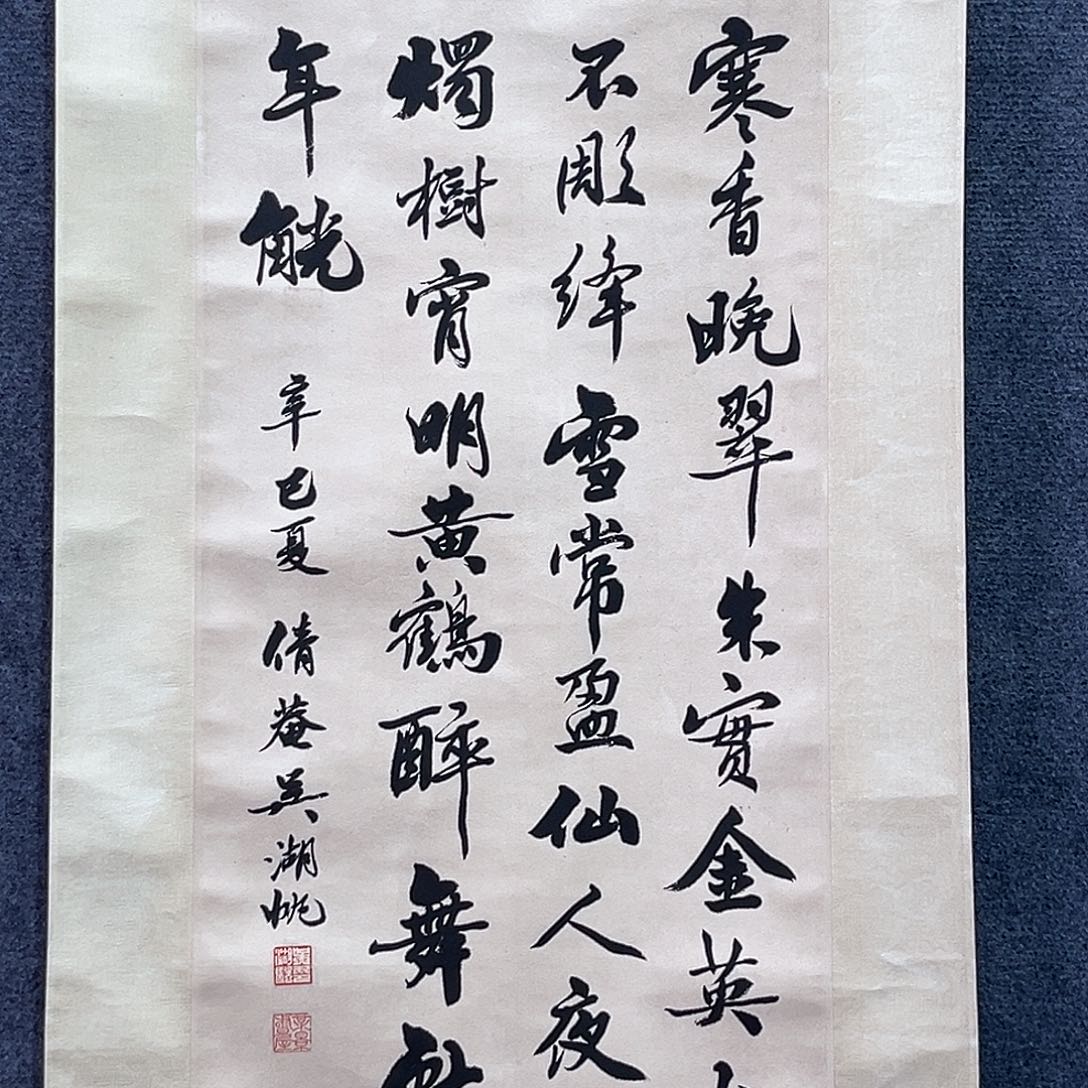 寒香晚翠朱實金英
不彫絳雪常盈仙人夜
燭樹宵明黃鶴醉舞
年觥
辛巳夏倩菴吳湖帆